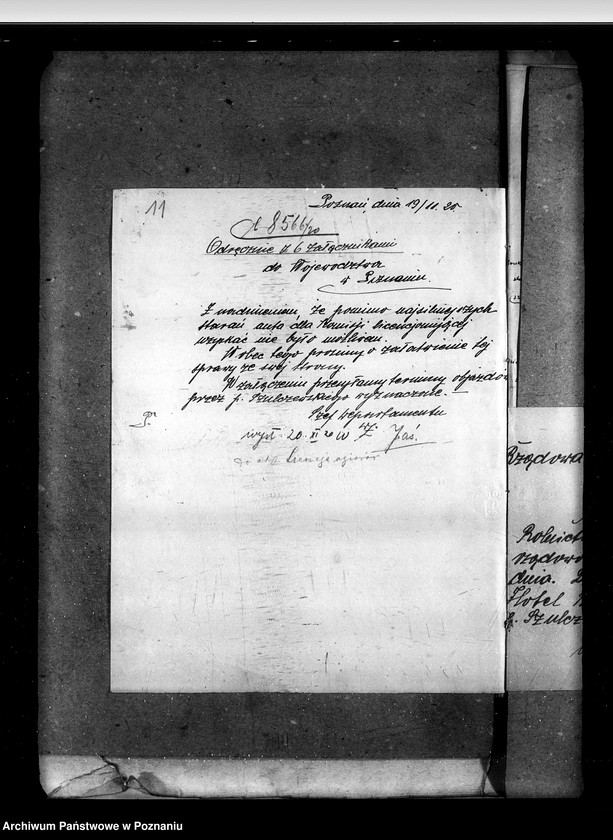 11
Poznań, dnia 19/11. 20.
8566/20
Odręcznie z 6 załącznikami
do Województwa
w Poznaniu.
Z nadmieniem, że pomimo najsilniejszych
starań auta dla Komisji licencjonującej
uzyskać nie było można.
Wobec tego prosimy o załatwienie tej
sprawy ze swej strony.
W załączeniu przesyłamy terminy objazdów
przez p. Szulczewskiego wyznaczone.
Szef Departamentu
wysł. 20. XI 20
do akt Licencja ogierów
Rządowa
Rolnict
rządow
dnia.
Hotel
p. Szulcz
Archiwum Państwowe w Poznaniu